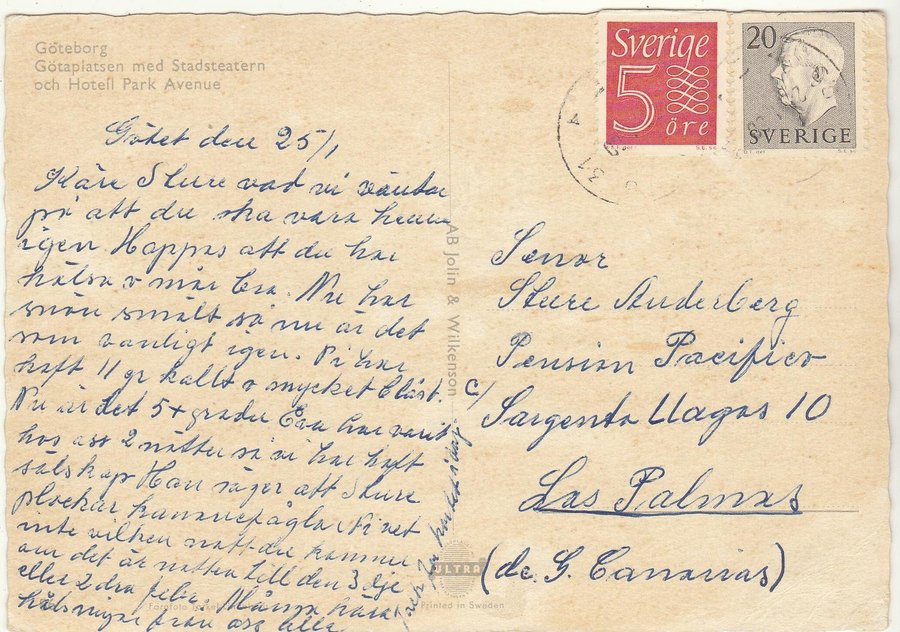 Göteborg
Götaplatsen med Stadsteatern
och Hotell Park Avenue
Sverige
5
öre
20
SVERIGE
Götet den 25/1
Käre Sture vad vi väntar
på att du ska vara hemma
igen. Hoppas att du har
hälsa o mår bra. Nu har
snön smält så nu är det
som vanligt igen. Vi har
haft 11 gr kallt o mycket blåst.
Nu är det 5+ grader Eva har varit
hos oss 2 nätter så vi har haft
sälskap Han säger att Sture
plockar kanariefåglar Vi vet
inte vilken natt du kommer
om det är natten till den 3dje
eller 2dra febr. Många
hälsningar från oss alla
AB Jolin & Wilkenson
Senor
Sture Anderberg
Pension Pacifico
c/ Sargento Llagas 10
Las Palmas
(de. G. Canarias)
ULTRA
Printed in Sweden